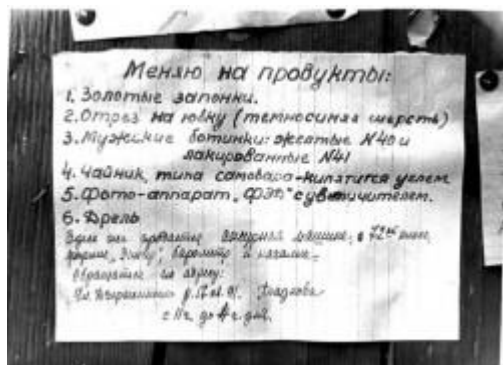 Меняю на продукты:
1. Золотые запонки.
2. Отрез на юбку (темносиняя шерсть)
3. Мужские ботинки: желтые N40 и
лакированные N41
4. Чайник типа самовара-кипятится углем
5. Фото-аппарат „ФЭД" с увеличителем.
6. Дрель
Здесь же продается машина, в 72
барометр и
Обращаться по адресу:
Ул. Дзержинского
с 11 ч. до 4 ч. дня.